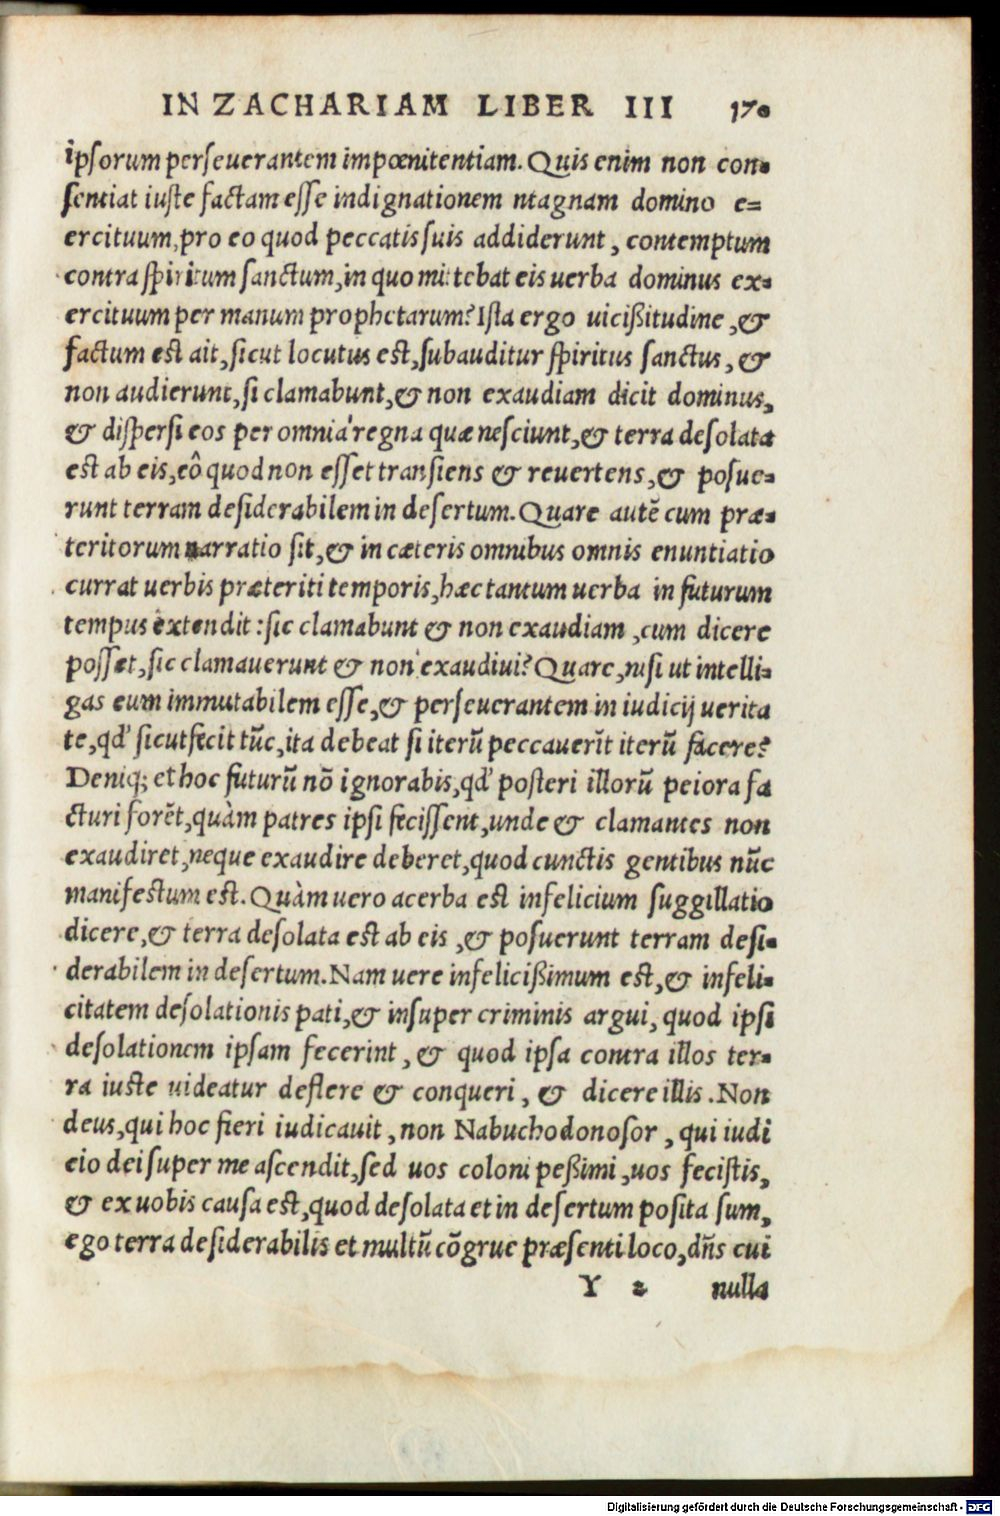 IN ZACHARIAM LIBER III 170
ipsorum perseuerantem impœnitentiam. Quis enim non con-
sentiat iuste factam esse indignationem magnam domino e=
ercituum, pro eo quod peccatis suis addiderunt, contemptum
contra spiritum sanctum, in quo mittebat eis uerba dominus ex-
ercituum per manum prophetarum? Ista ergo uicißitudine, &
factum est ait, sicut locutus est, subauditur spiritus sanctus, &
non audierunt, si clamabunt, & non exaudiam dicit dominus,
& dispersi eos per omnia regna quæ nesciunt, & terra desolata
est ab eis, eô quod non esset transiens & reuertens, & posue-
runt terram desiderabilem in desertum. Quare autē cum præ-
teritorum narratio sit, & in cæteris omnibus omnis enuntiatio
currat uerbis præteriti temporis, hæc tantum uerba in futurum
tempus extendit: sic clamabunt & non exaudiam, cum dicere
posset, sic clamauerunt & non exaudiui? Quare, nisi ut intelli-
gas eum immutabilem esse, & perseuerantem in iudicij uerita
te, qd' sicut fecit tūc, ita debeat si iterū peccauerīt iterū facere?
Deniq; et hoc futurū nō ignorabis, qd' posteri illorū peiora fa
cturi forēt, quàm patres ipsi fecissent, unde & clamantes non
exaudiret, neque exaudire deberet, quod cunctis gentibus nūc
manifestum est. Quàm uero acerba est infelicium suggillatio
dicere, & terra desolata est ab eis, & posuerunt terram desi-
derabilem in desertum. Nam uere infelicißimum est, & infeli-
citatem desolationis pati, & insuper criminis argui, quod ipsi
desolationem ipsam fecerint, & quod ipsa contra illos ter-
ra iuste uideatur deflere & conqueri, & dicere illis. Non
deus, qui hoc fieri iudicauit, non Nabuchodonosor, qui iudi
cio dei super me ascendit, sed uos coloni peßimi, uos fecistis,
& ex uobis causa est, quod desolata et in desertum posita sum,
ego terra desiderabilis et multū cōgrue præsenti loco, dn̄s cui
Y 2 nulla
Digitalisierung gefördert durch die Deutsche Forschungsgemeinschaft - DFG